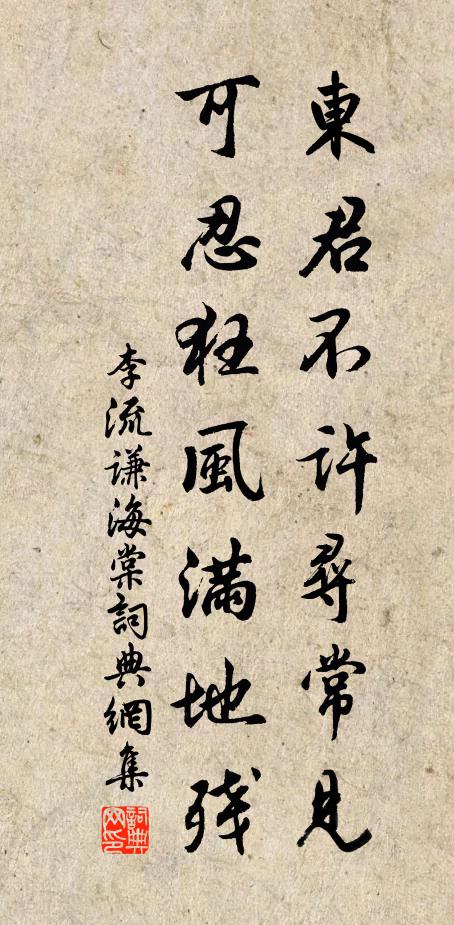 東君不許尋常見
可忍狂風滿地残
李流謙海棠詞典網集
詞典网印